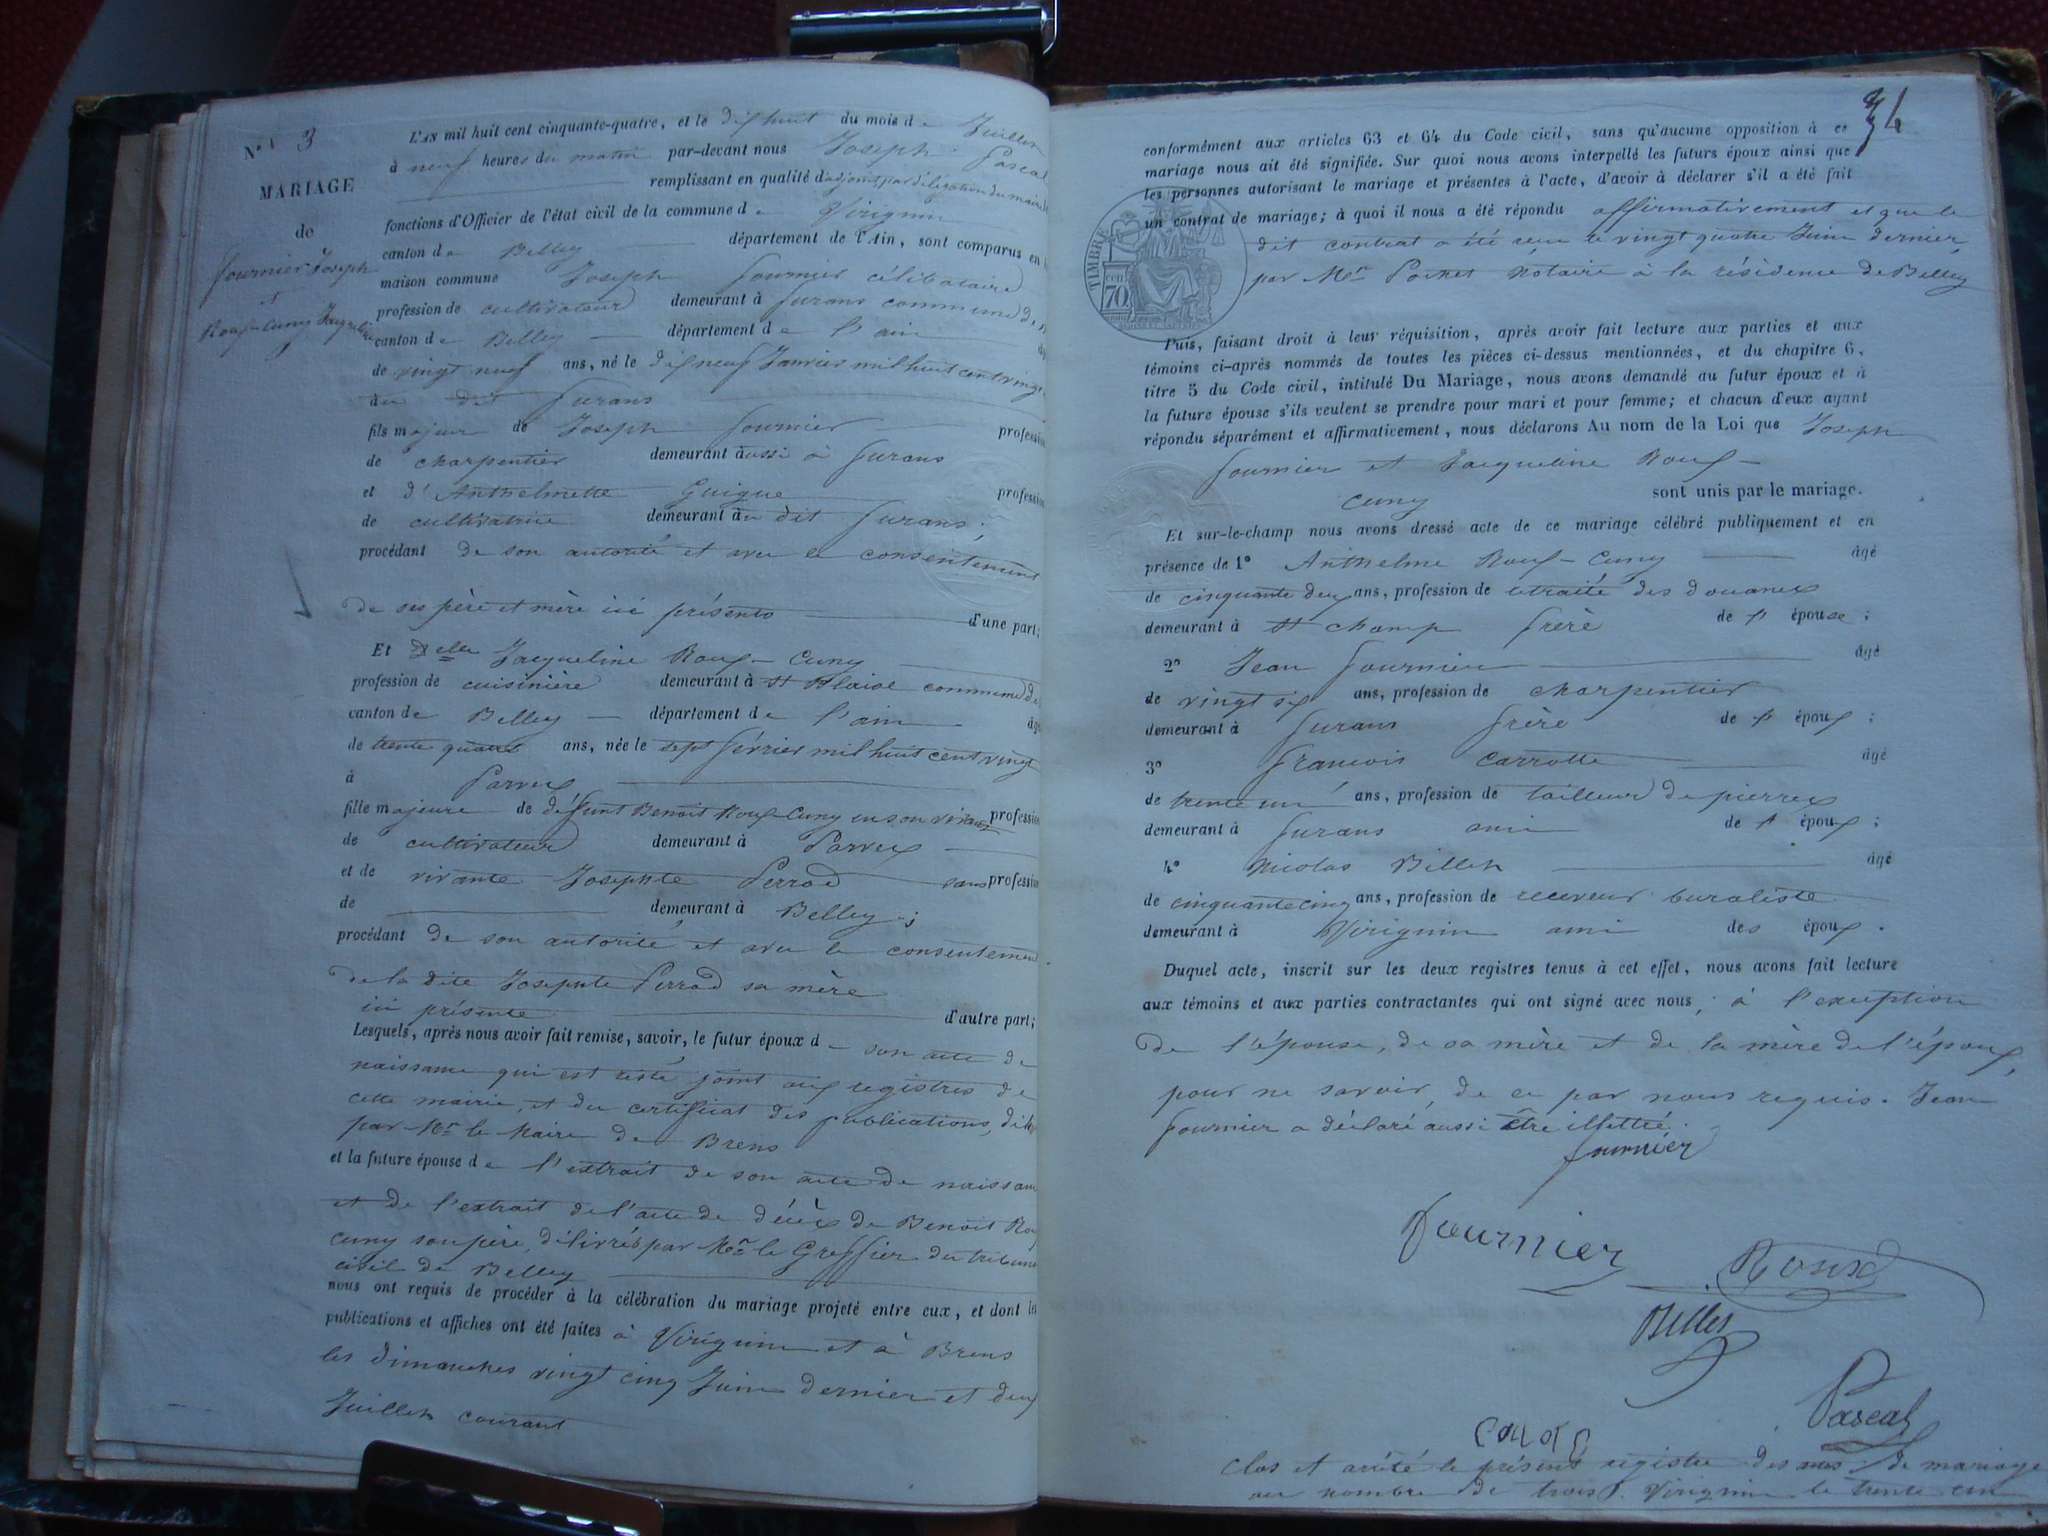 N.° 3
MARIAGE
de
fournier Joseph
et
Roux-Cuny Jacqueline
L'AN mil huit cent cinquante-quatre, et le dix huit du mois de Juillet
à neuf heures du matin par-devant nous Joseph Pascal
remplissant en qualité d'adjoint, par délégation du maire, les
fonctions d'Officier de l'état civil de la commune de Virignin
canton de Belley département de l'Ain, sont comparus en la
maison commune Joseph fournier célibataire
profession de cultivateur demeurant à furans commune de
canton de Belley département de l'ain
de vingt neuf ans, né le dix neuf Janvier mil huit cent vingt
au dit furans
fils majeur de Joseph fournier profession
de charpentier demeurant aussi à furans
et d'Anthelmette Guigue profession
de cultivatrice demeurant au dit furans;
procédant de son autorité et avec le consentement
de ses père et mère ici présents d'une part;
Et Delle Jacqueline Roux-Cuny
profession de cuisinière demeurant à St Blaise commune de
canton de Belley département de l'ain âgée
de trente quatre ans, née le sept février mil huit cent vingt
à Parves
fille majeure de défunt Benoit Roux-Cuny en son vivant profession
de cultivateur demeurant à Parves
et de vivante Josephte Perrod sans profession
de demeurant à Belley;
procédant de son autorité et avec le consentement
de la dite Josephte Perrod sa mère
ici présente d'autre part;
Lesquels, après nous avoir fait remise, savoir, le futur époux de son acte de
naissance qui est resté joint aux registres de
cette mairie, et du certificat des publications, délivré
par Mr le Maire de Brens
et la future épouse de l'extrait de son acte de naissance
et de l'extrait de l'acte de décès de Benoit Roux
Cuny son père, délivrés par Mr le Greffier du tribunal
civil de Belley
nous ont requis de procéder à la célébration du mariage projeté entre eux, et dont les
publications et affiches ont été faites à Virignin et à Brens
les dimanches vingt cinq Juin dernier et deux
Juillet courant
34
conformément aux articles 63 et 64 du Code cicil, sans qu'aucune opposition à ce
mariage nous ait été signifiée. Sur quoi nous avons interpellé les futurs époux ainsi que
les personnes autorisant le mariage et présentes à l'acte, d'avoir à déclarer s'il a été fait
un contrat de mariage; à quoi il nous a été répondu affirmativement et que le
dit contrat a été reçu le vingt quatre Juin dernier,
par Me Pochet Notaire à la résidence de Belley
TIMBRE
70
Puis, faisant droit à leur réquisition, après avoir fait lecture aux parties et aux
témoins ci-après nommés de toutes les pièces ci-dessus mentionnées, et du chapitre 6,
titre 5 du Code civil, intitulé Du Mariage, nous avons demandé au futur époux et à
la future épouse s'ils veulent se prendre pour mari et pour femme; et chacun d'eux ayant
répondu séparément et affirmativement, nous déclarons Au nom de la Loi que Joseph
fournier et Jacqueline Roux-
Cuny sont unis par le mariage.
Et sur-le-champ nous avons dressé acte de ce mariage célébré publiquement et en
présence de 1° Anthelme Roux-Cuny âgé
de cinquante deux ans, profession de retraité des douanes
demeurant à St champ frère de l'épouse;
2° Jean fournier âgé
de vingt six ans, profession de charpentier
demeurant à furans frère de l'époux;
3° francois Carrotte âgé
de trente un ans, profession de tailleur de pierres
demeurant à furans ami de l'époux;
4° Nicolas Billet âgé
de cinquante cinq ans, profession de receveur buraliste
demeurant à Virignin ami des époux.
Duquel acte, inscrit sur les deux registres tenus à cet effet, nous avons fait lecture
aux témoins et aux parties contractantes qui ont signé avec nous, à l'exception
de l'épouse, de sa mère et de la mère de l'époux,
pour ne savoir, de ce par nous requis. Jean
fournier a déclaré aussi être illettré.
fournier
fournier
Roux
Billet
Pascal
Clos et arrêté le présent registre des actes de mariage
au nombre de trois. Virignin le trente